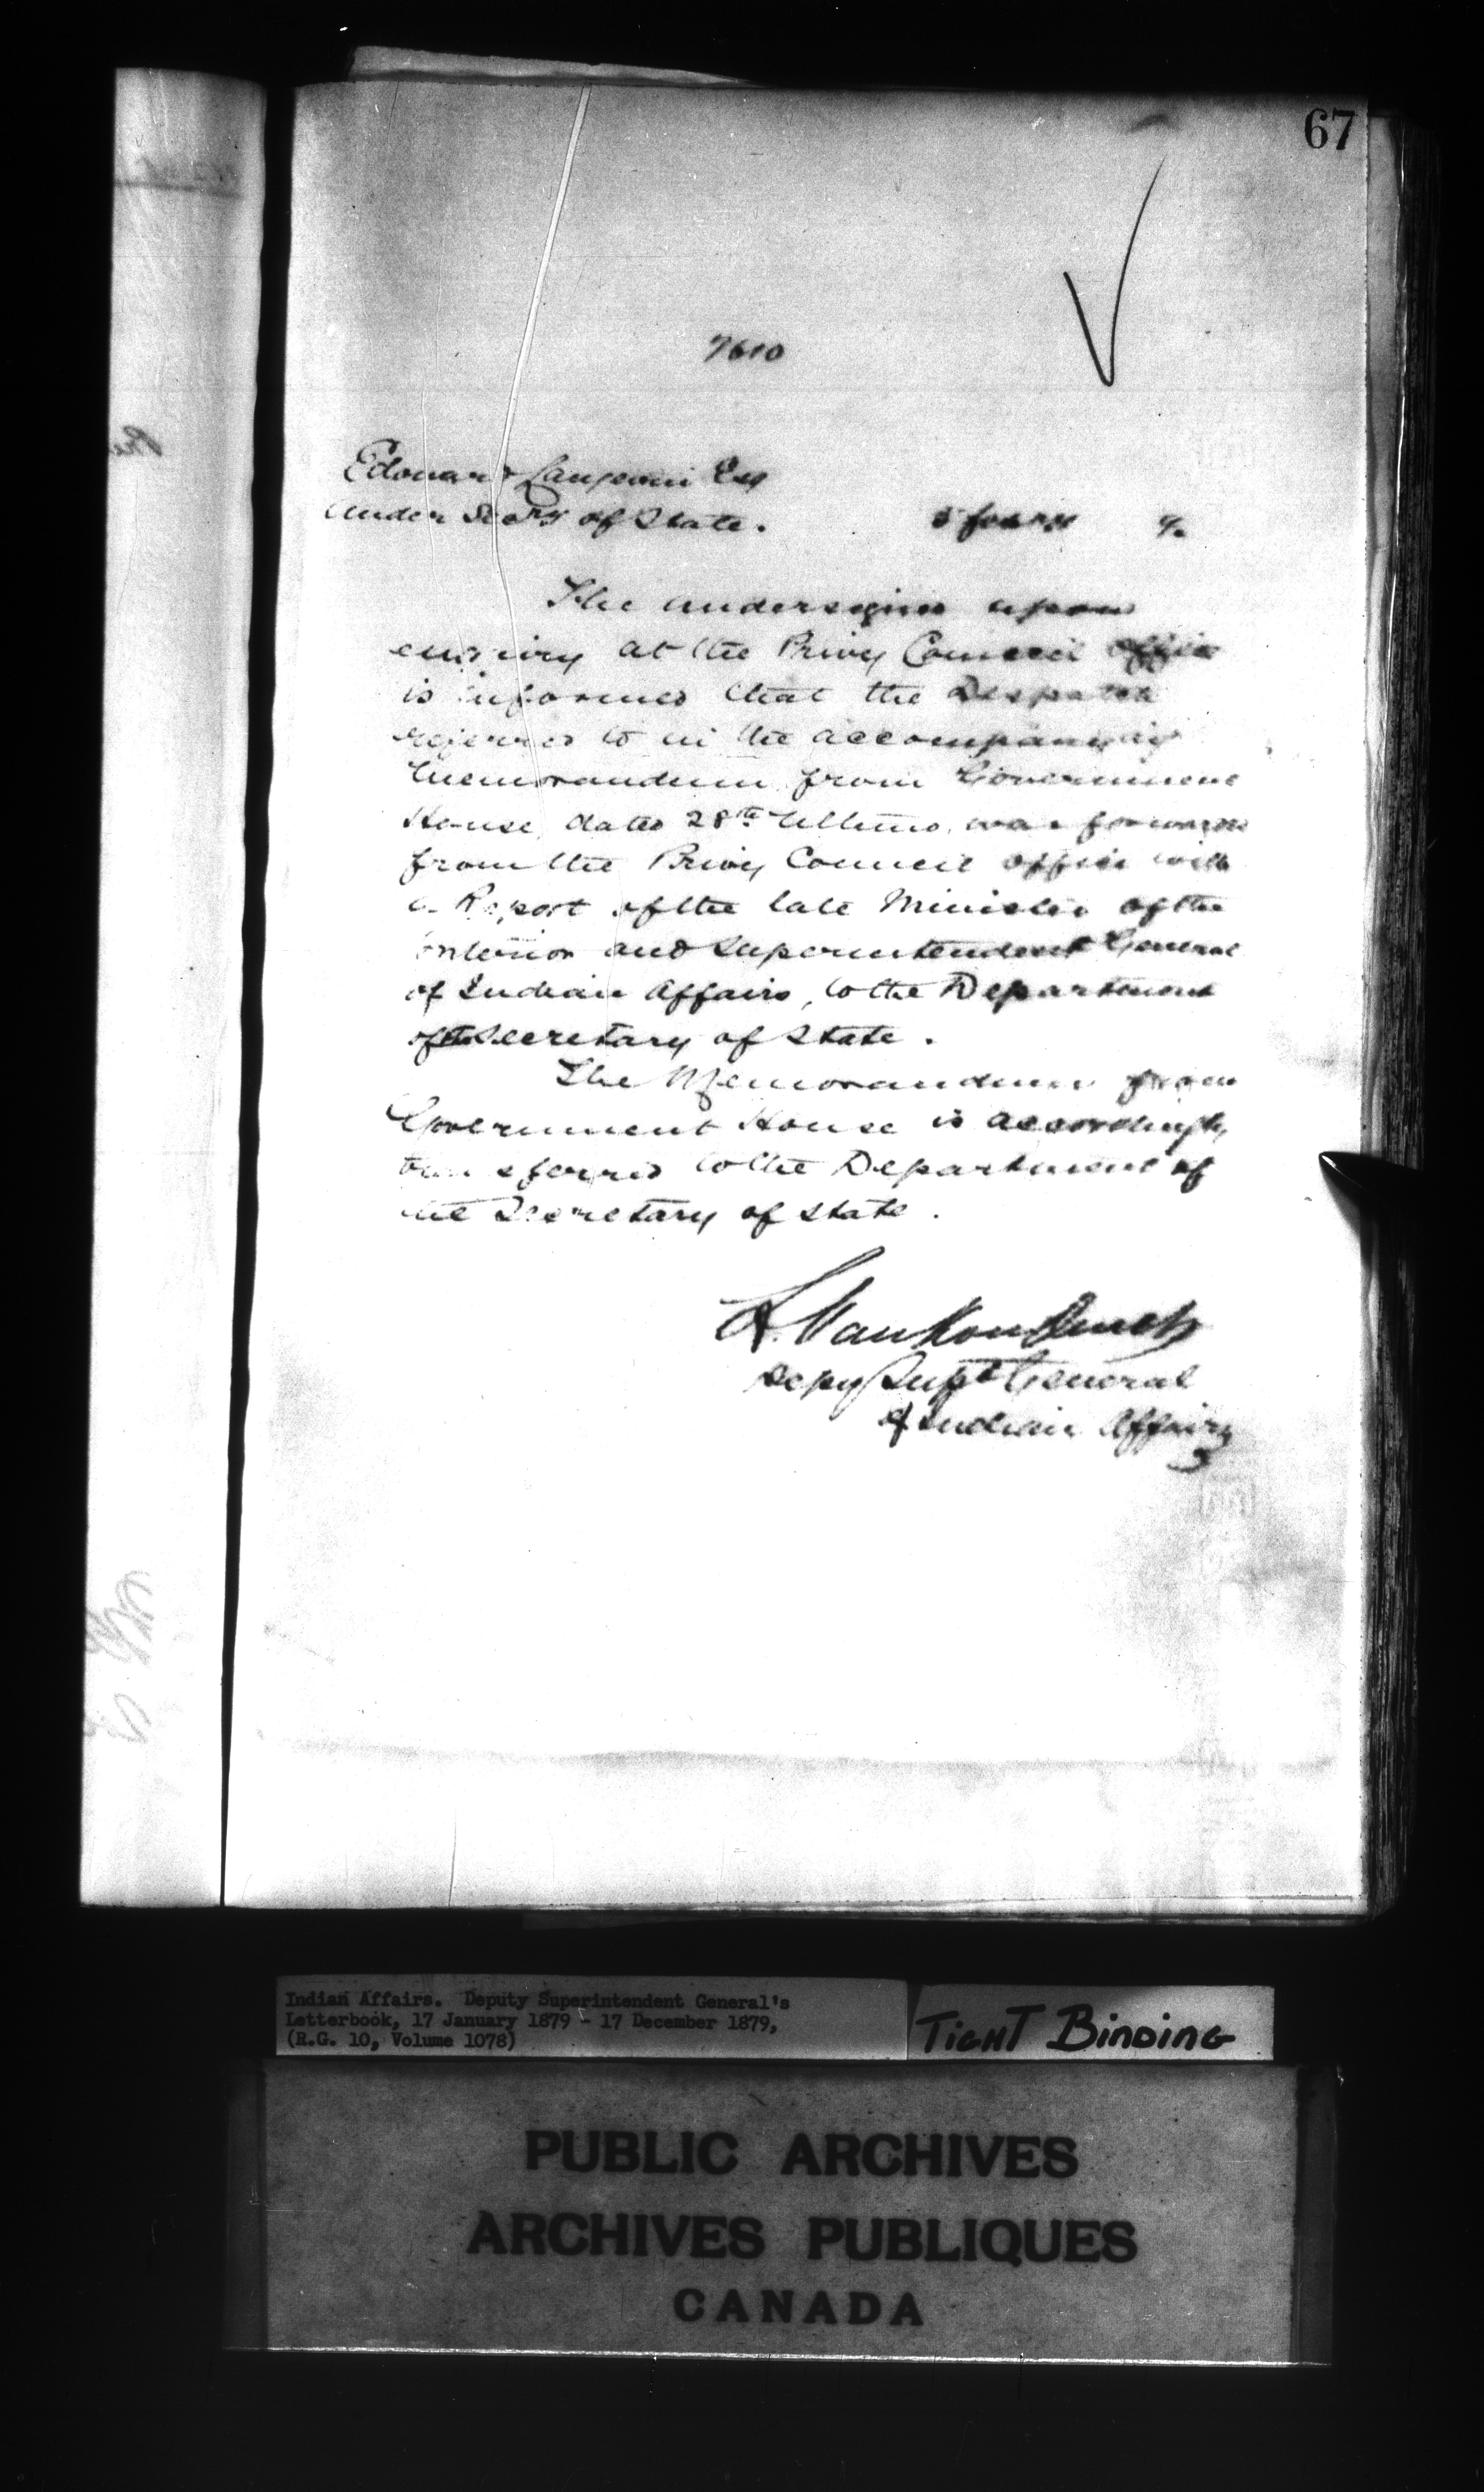 67
7610
Edouard Langevin Esq
Under Secry of State.
The undersigned upon
enquiry at the Privy Council Office
is informed that the Despatch
referred to in the accompanying
Memorandum from Government
House, dated 28th Ultimo, was forwarded
from the Privy Council Office with
a Report of the late Minister of the
Interior and Superintendent General
of Indian Affairs, to the Department
of the Secretary of State.
The Memorandum from
Government House is accordingly
transferred to the Department of
the Secretary of State.
L. VanKoughnet
Depy Supt General
of Indian Affairs
Indian Affairs. Deputy Superintendent General's
Letterbook, 17 January 1879 - 17 December 1879,
(R.G. 10, Volume 1078)
TIGHT BINDING
PUBLIC ARCHIVES
ARCHIVES PUBLIQUES
CANADA